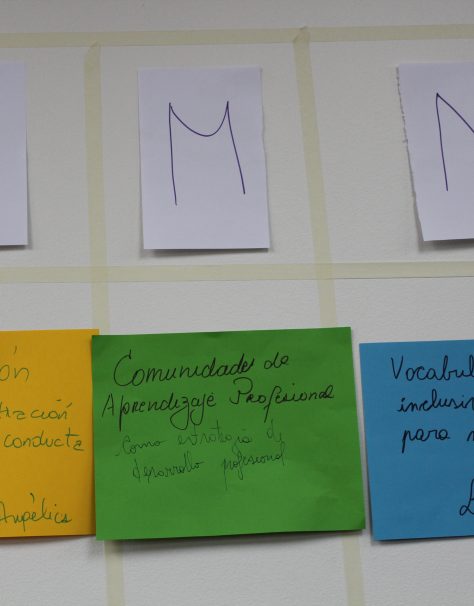 M
ón
tización
conducta
Angélica
Comunidades de
Aprendizaje Profesional
Como estrategia de
desarrollo profesional
Vocabul
inclusiv
para